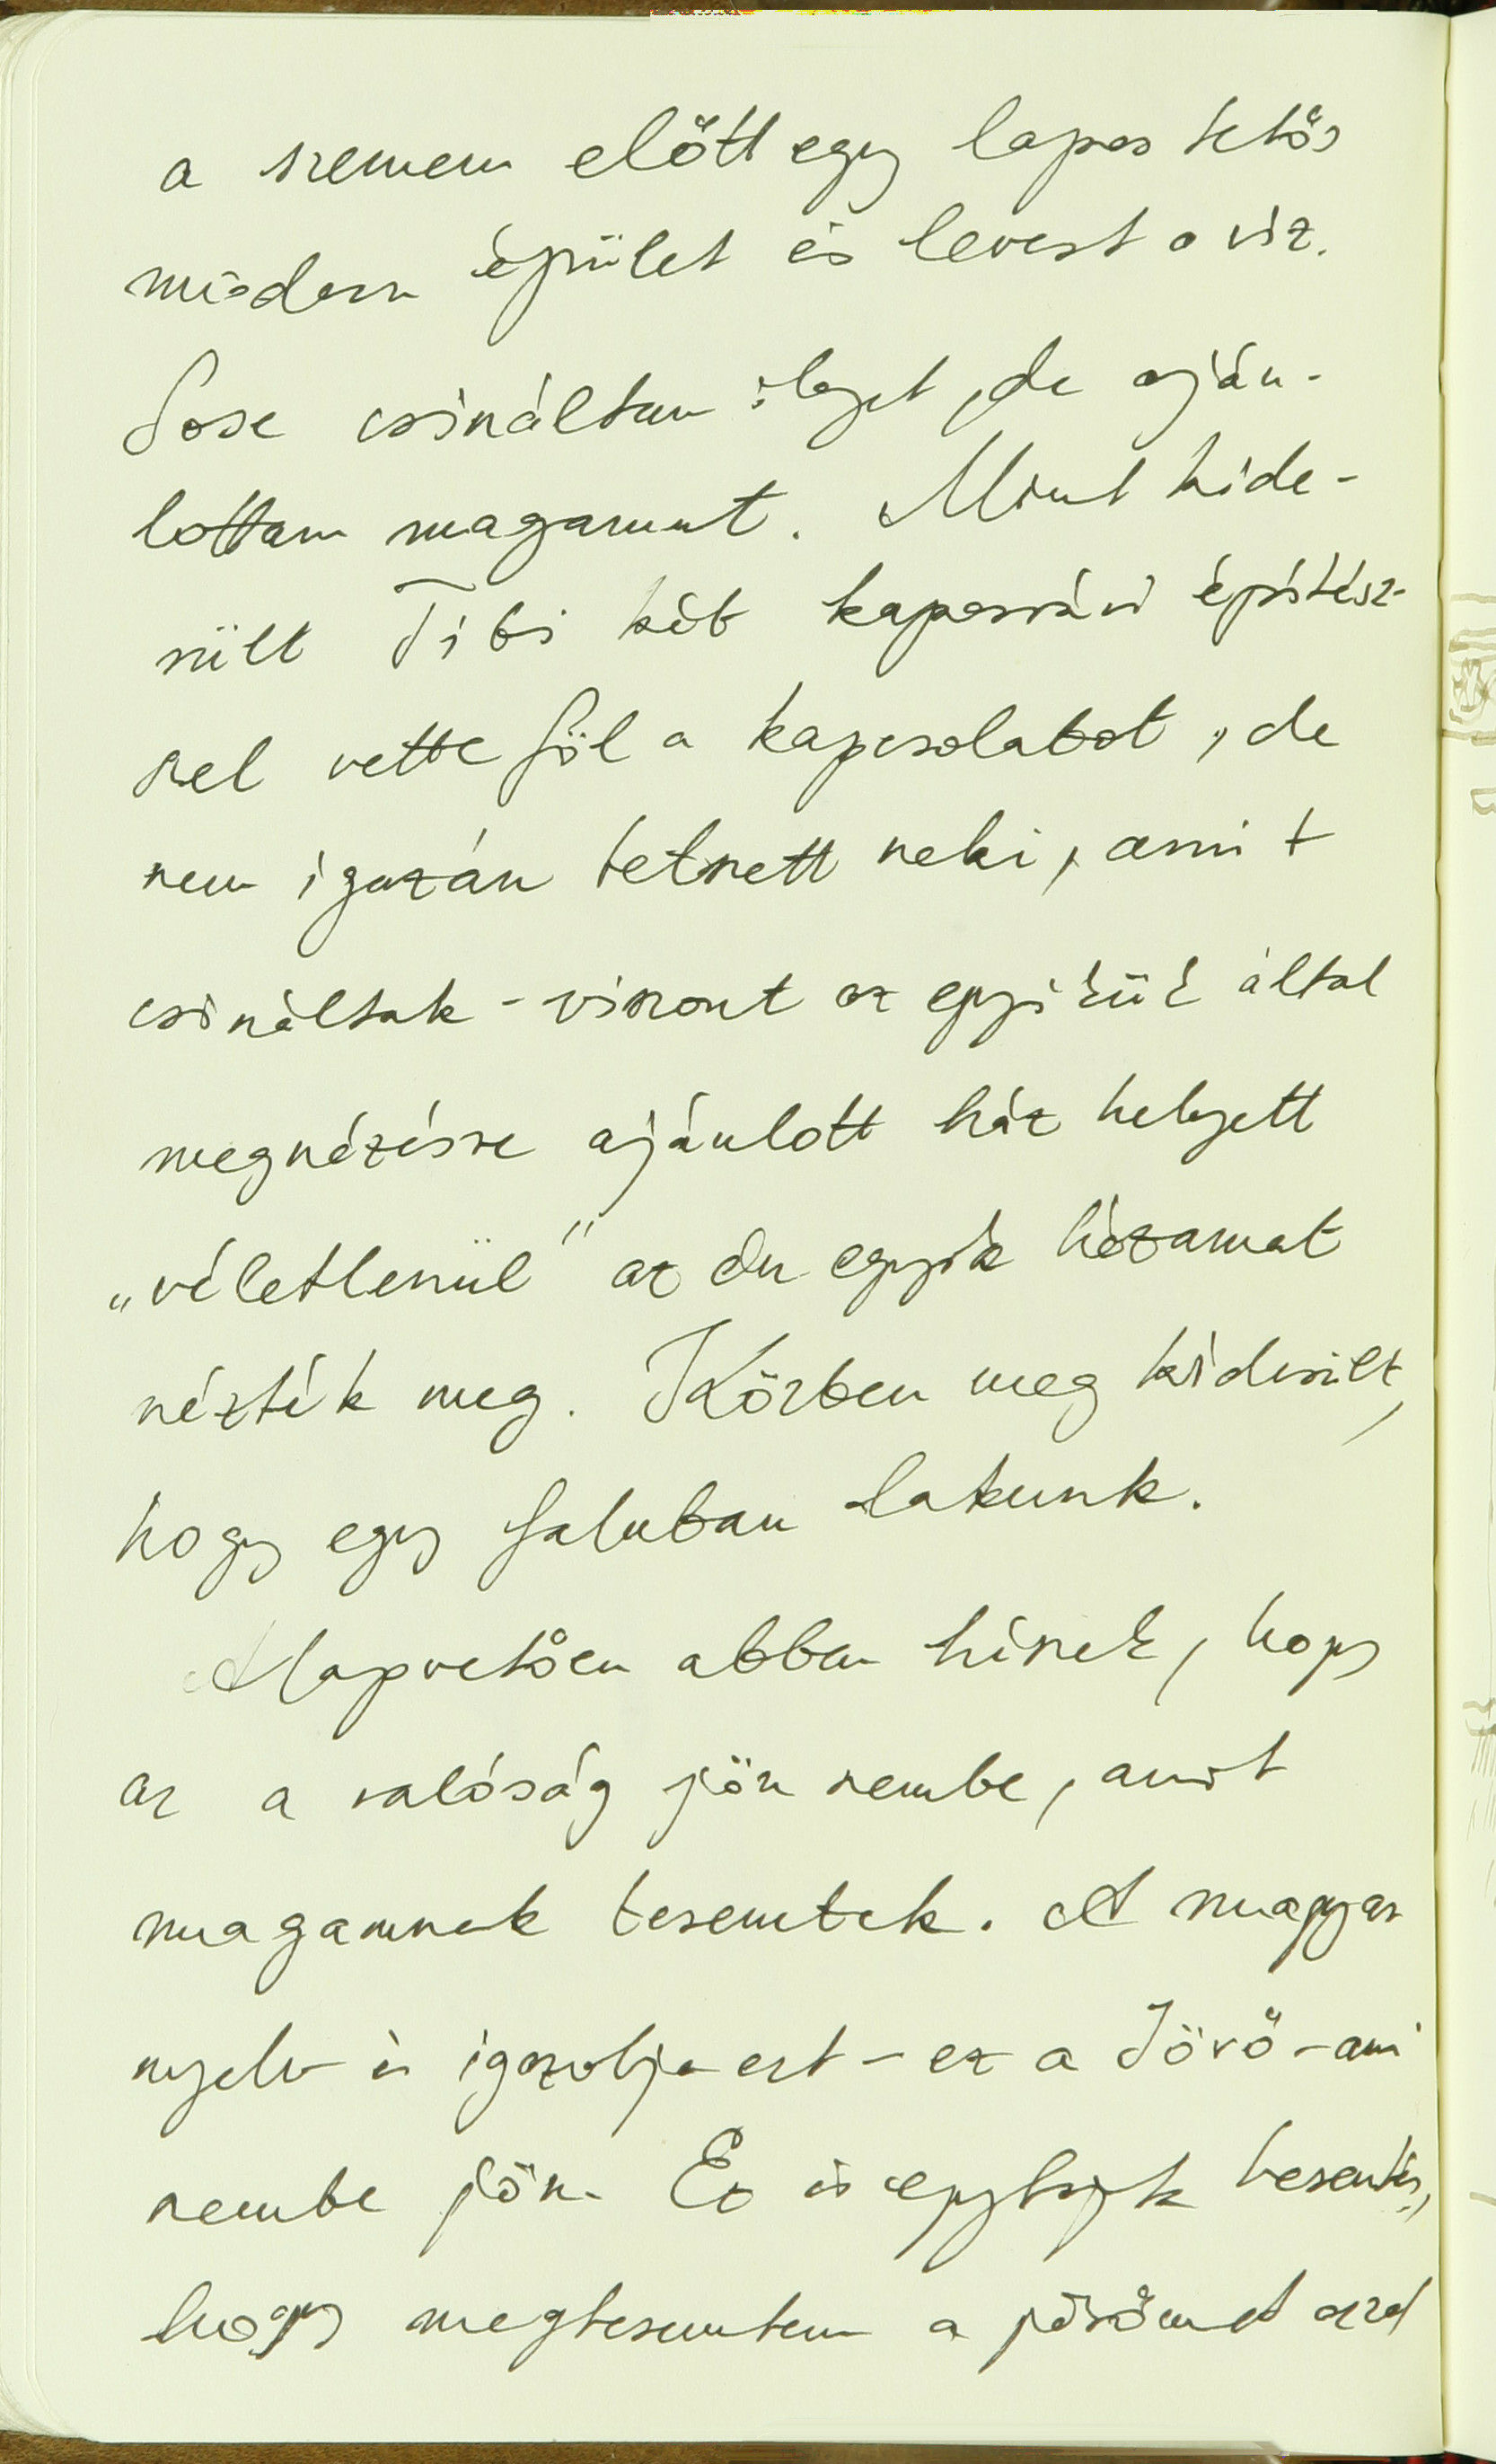 a szemem előtt egy lapos tetős
modern épület és levest a víz.
Sose csináltam ilyet, de aján-
lottam magamat. Mint kide-
rült Tibi két kaposvári építész-
szel vette föl a kapcsolatot, de
nem igazán tetszett neki, amit
csináltak - viszont az egyikük által
megnézésre ajánlott ház helyett
„véletlenül" az én egyik házamat
nézték meg. Közben meg kiderült,
hogy egy faluban lakunk.
Alapvetően abban hiszek, hogy
az a valóság jön szembe, amit
magamnak teremtek. A magyar
nyelv is igazolja ezt - ez a Jövő - ami
szembe jön. Ez is egyfajta teremtés,
hogy megteremtem a jövőmet azzal